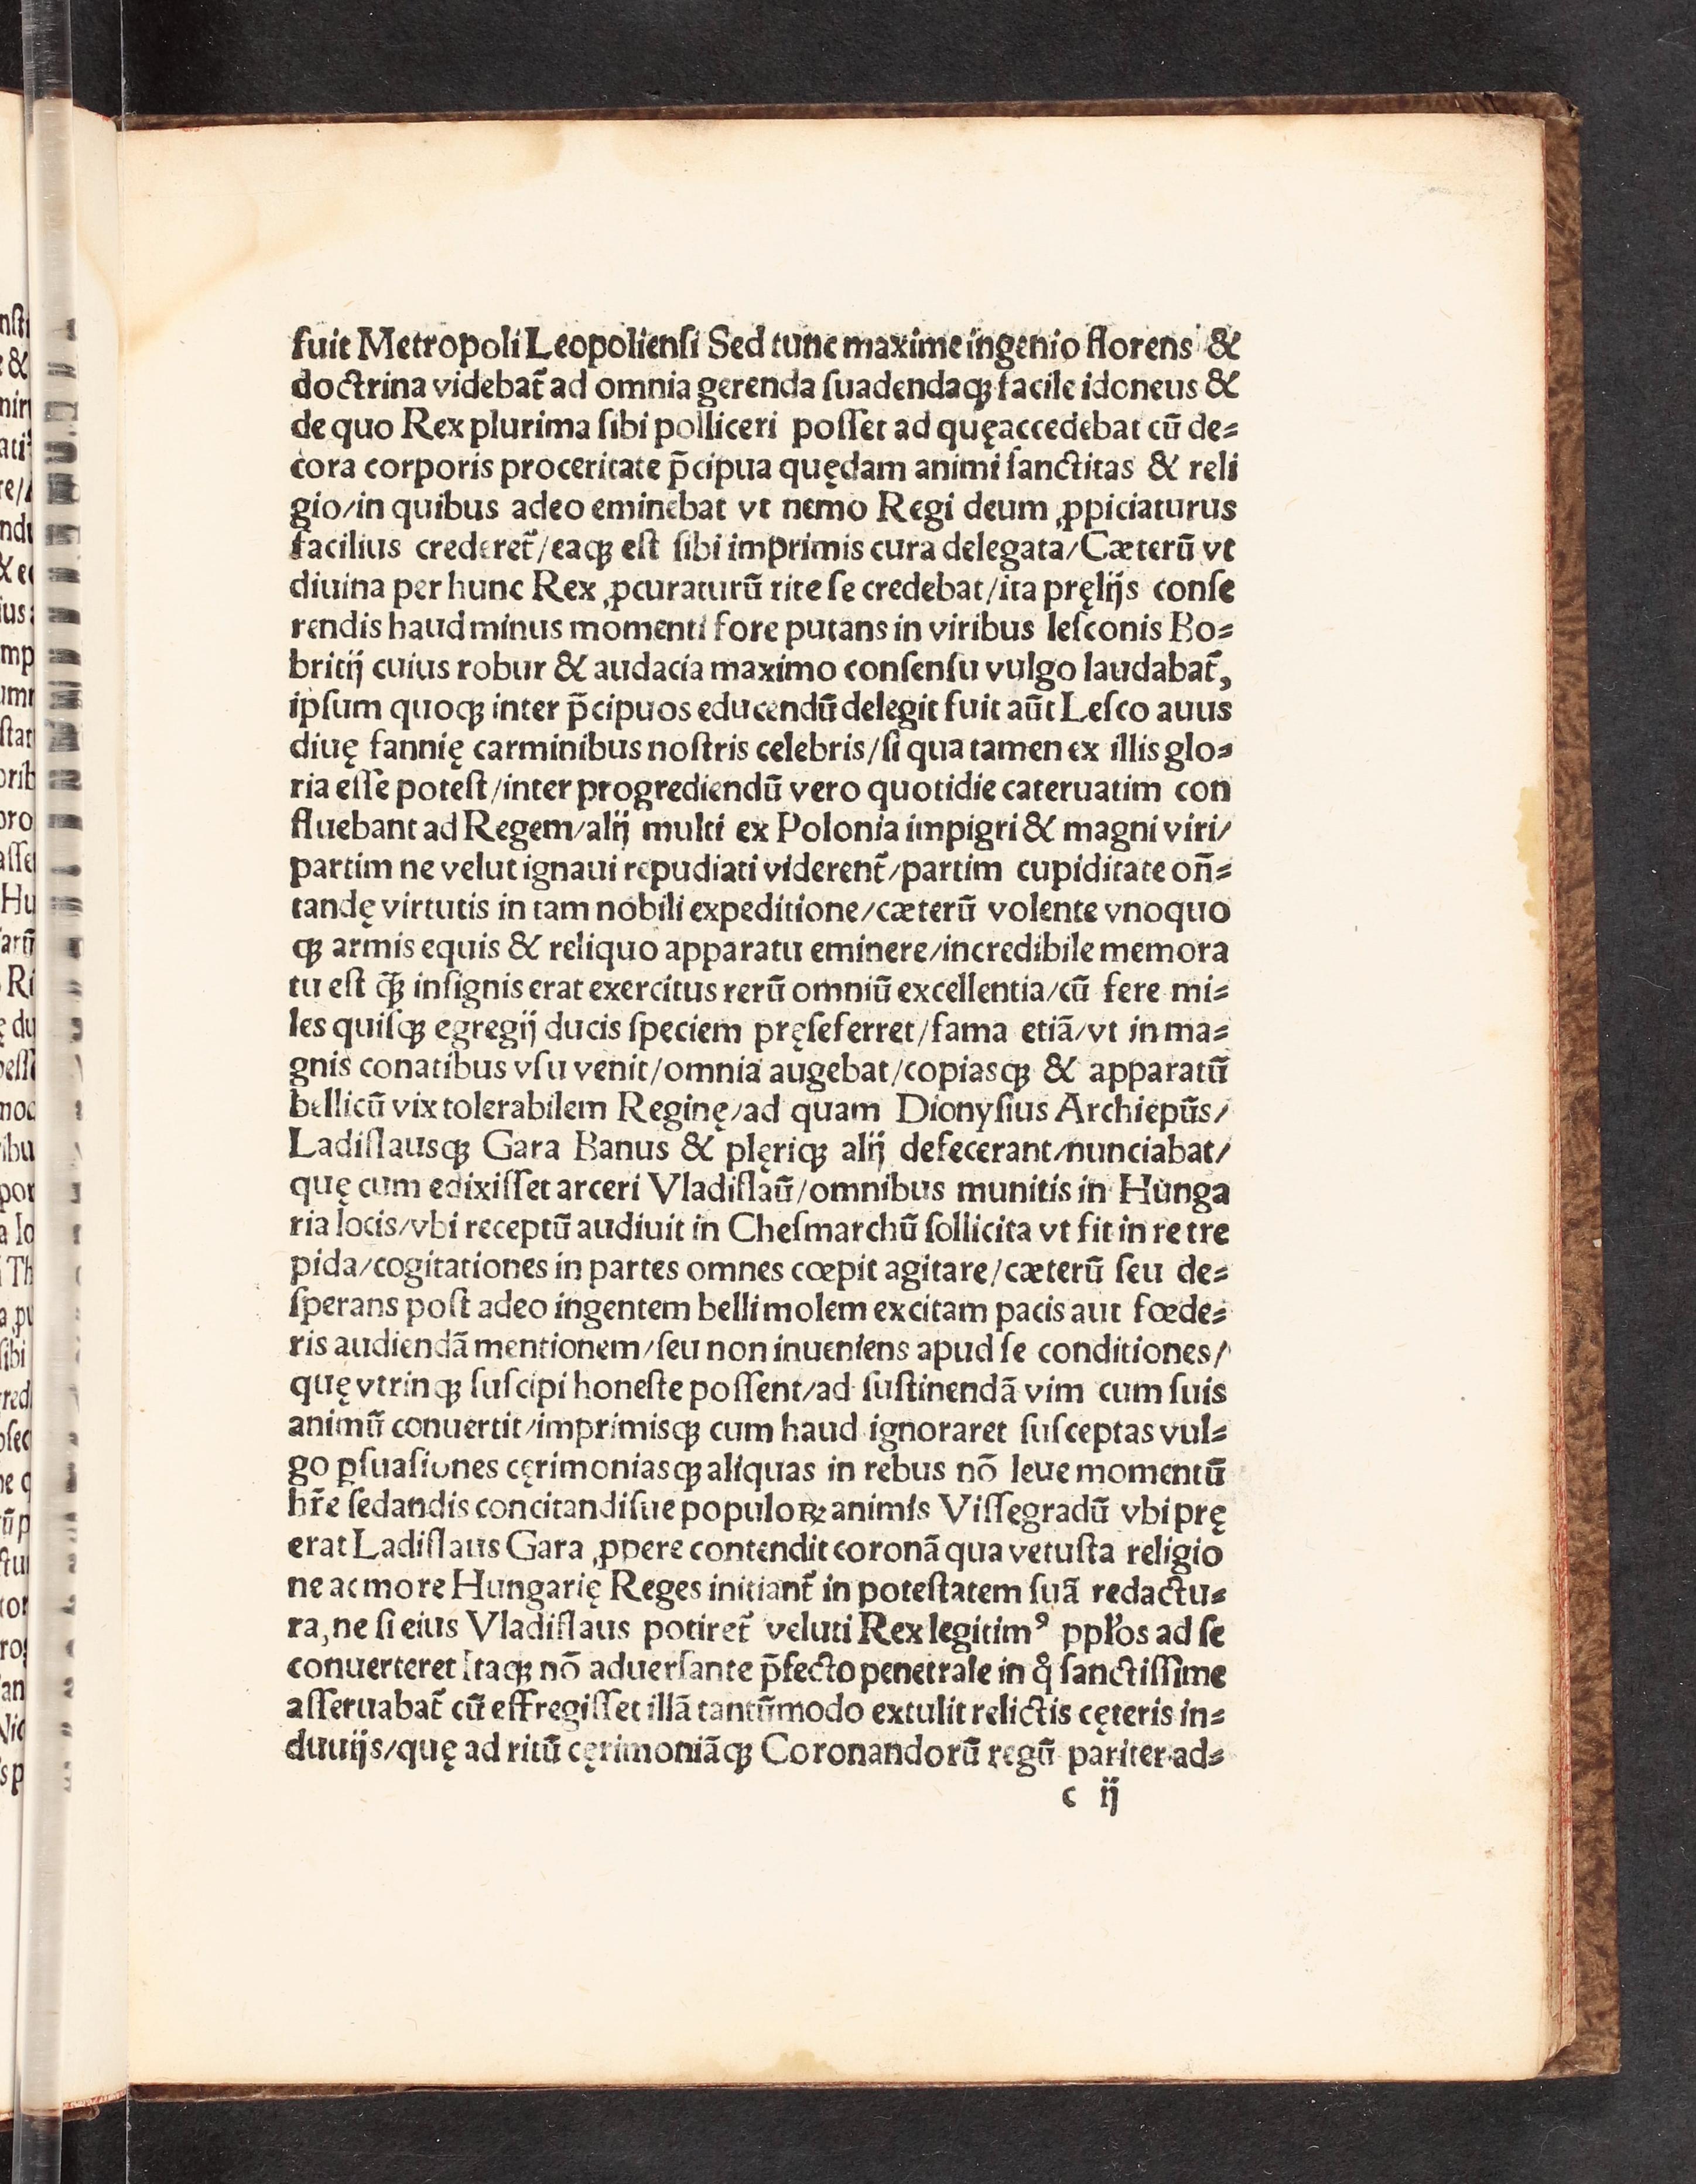 fuit Metropoli Leopolienſi Sed tunc maxime ingenio florens &
doctrina videbat̃ ad omnia gerenda ſuadendaqꝫ facile idoneus &
de quo Rex plurima ſibi polliceri poſſet ad quę accedebat cū de⸗
cora corporis proceritate p̄cipua quędam animi ſanctitas & reli
gio/in quibus adeo eminebat vt nemo Regi deum ꝓpiciaturus
facilius crederet̃/eaqꝫ eſt ſibi imprimis cura delegata/Cæterū vt
diuina per hunc Rex ꝓcuraturū rite ſe credebat/ita pręlijs conſe
rendis haud minus momenti fore putans in viribus leſconis Bo⸗
britij cuius robur & audacia maximo conſenſu vulgo laudabat̃,
ipſum quoqꝫ inter p̄cipuos educendū delegit fuit aūt Leſco auus
diuę fannię carminibus noſtris celebris/ſi qua tamen ex illis glo⸗
ria eſſe poteſt/inter progrediendū vero quotidie cateruatim con
fluebant ad Regem/alij multi ex Polonia impigri & magni viri/
partim ne velut ignaui repudiati viderent̃/partim cupiditate oñ⸗
tandę virtutis in tam nobili expeditione/cæterū volente vnoquo
qꝫ armis equis & reliquo apparatu eminere/incredibile memora
tu eſt qꝫ̄ inſignis erat exercitus rerū omniū excellentia/cū fere mi⸗
les quiſqꝫ egregij ducis ſpeciem pręſeferret/fama etiā/vt in ma⸗
gnis conatibus vſu venit/omnia augebat/copiasqꝫ & apparatū
bellicū vix tolerabilem Reginę/ad quam Dionyſius Archiepūs/
Ladiſlausqꝫ Gara Banus & plęriqꝫ alij defecerant/nunciabat/
quę cum edixiſſet arceri Vladiſlaū/omnibus munitis in Hunga
ria locis/vbi receptū audiuit in Cheſmarchū ſollicita vt fit in re tre
pida/cogitationes in partes omnes cœpit agitare/cæterū ſeu de⸗
ſperans poſt adeo ingentem belli molem excitam pacis aut fœde⸗
ris audiendā mentionem/ſeu non inueniens apud ſe conditiones/
quę vtrinqꝫ ſuſcipi honeſte poſſent/ad ſuſtinendā vim cum ſuis
animū conuertit/imprimisqꝫ cum haud ignoraret ſuſceptas vul⸗
go ꝑſuaſiones cęrimoniasqꝫ aliquas in rebus nō leue momentū
hr̄e ſedandis concitandiſue populoꝝ animis Viſſegradū vbi prę
erat Ladiſlaus Gara ꝓpere contendit coronā qua vetuſta religio
ne ac more Hungarię Reges initiant̃ in poteſtatem ſuā redactu⸗
ra, ne ſi eius Vladiſlaus potiret̃ veluti Rex legitimꝰ ppl̄os ad ſe
conuerteret Itaqꝫ nō aduerſante p̄fecto penetrale in qͦ ſanctiſſime
aſſeruabat̃ cū effregiſſet illā tantūmodo extulit relictis cęteris in⸗
duuijs/quę ad ritū cęrimoniāqꝫ Coronandorū regū pariter ad⸗
c ij